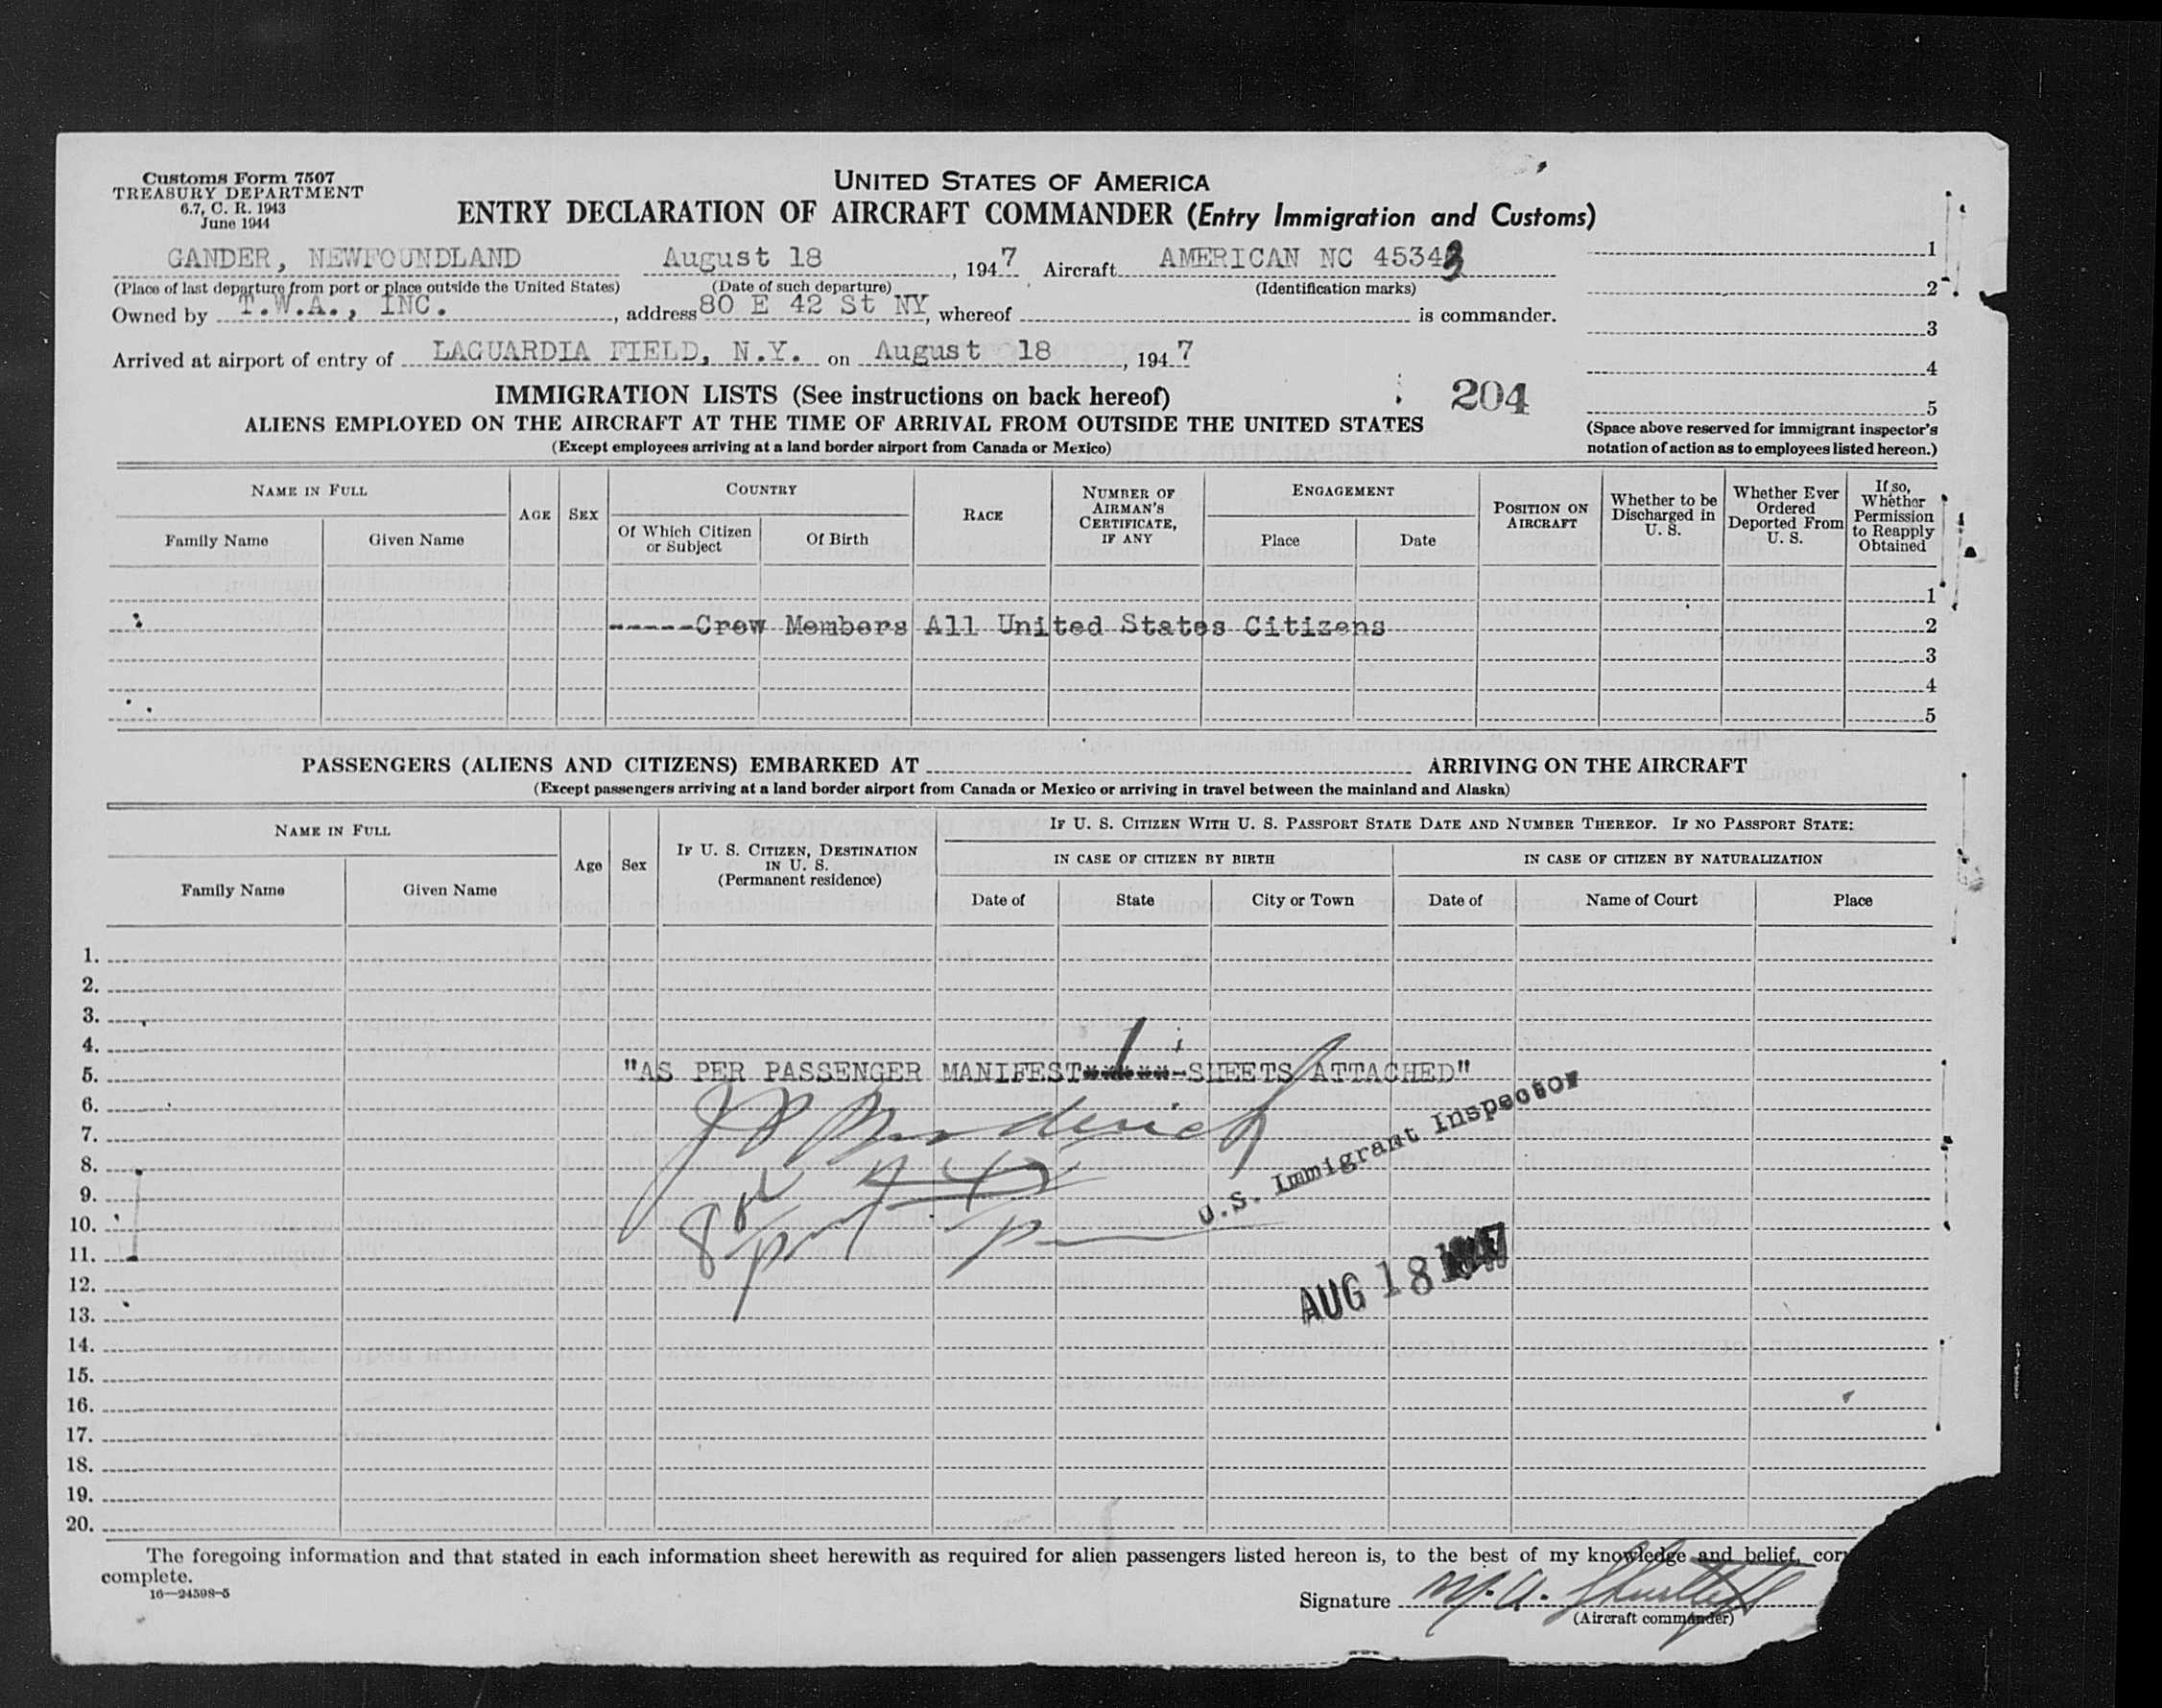 Customs Form 7507
TREASURY DEPARTMENT
6.7, C. R. 1943
June 1944
UNITED STATES OF AMERICA
ENTRY DECLARATION OF AIRCRAFT COMMANDER (Entry Immigration and Customs)
GANDER, NEWFOUNDLAND August 18, 1947 Aircraft AMERICAN NC 45343
(Place of last departure from port or place outside the United States) (Date of such departure) (Identification marks)
Owned by T.W.A., INC., address 80 E 42 St NY, whereof is commander.
Arrived at airport of entry of LAGUARDIA FIELD, N.Y. on August 18, 1947
1
2
3
4
5
(Space above reserved for immigrant inspector's
notation of action as to employees listed hereon.)
IMMIGRATION LISTS (See instructions on back hereof)
204
ALIENS EMPLOYED ON THE AIRCRAFT AT THE TIME OF ARRIVAL FROM OUTSIDE THE UNITED STATES
(Except employees arriving at a land border airport from Canada or Mexico)
NAME IN FULL
Family Name
Given Name
AGE
SEX
COUNTRY
Of Which Citizen
or Subject
Of Birth
RACE
NUMBER OF
AIRMAN'S
CERTIFICATE,
IF ANY
ENGAGEMENT
Place
Date
POSITION ON
AIRCRAFT
Whether to be
Discharged in
U. S.
Whether Ever
Ordered
Deported From
U. S.
If so,
Whether
Permission
to Reapply
Obtained
1
-----Crew Members All United States Citizens 2
3
4
5
PASSENGERS (ALIENS AND CITIZENS) EMBARKED AT ARRIVING ON THE AIRCRAFT
(Except passengers arriving at a land border airport from Canada or Mexico or arriving in travel between the mainland and Alaska)
NAME IN FULL
Family Name
Given Name
Age
Sex
IF U. S. CITIZEN, DESTINATION
IN U. S.
(Permanent residence)
IF U. S. CITIZEN WITH U. S. PASSPORT STATE DATE AND NUMBER THEREOF. IF NO PASSPORT STATE:
IN CASE OF CITIZEN BY BIRTH
IN CASE OF CITIZEN BY NATURALIZATION
Date of
State
City or Town
Date of
Name of Court
Place
1.
2.
3.
4.
5. "AS PER PASSENGER MANIFEST 1 SHEETS ATTACHED"
6.
7.
8.
9.
10.
11.
12.
13.
14.
15.
16.
17.
18.
19.
20.
U.S. Immigrant Inspector
AUG 18 1947
The foregoing information and that stated in each information sheet herewith as required for alien passengers listed hereon is, to the best of my knowledge and belief,
complete.
16—24598-5
Signature M. A. Shurtleff
(Aircraft commander)